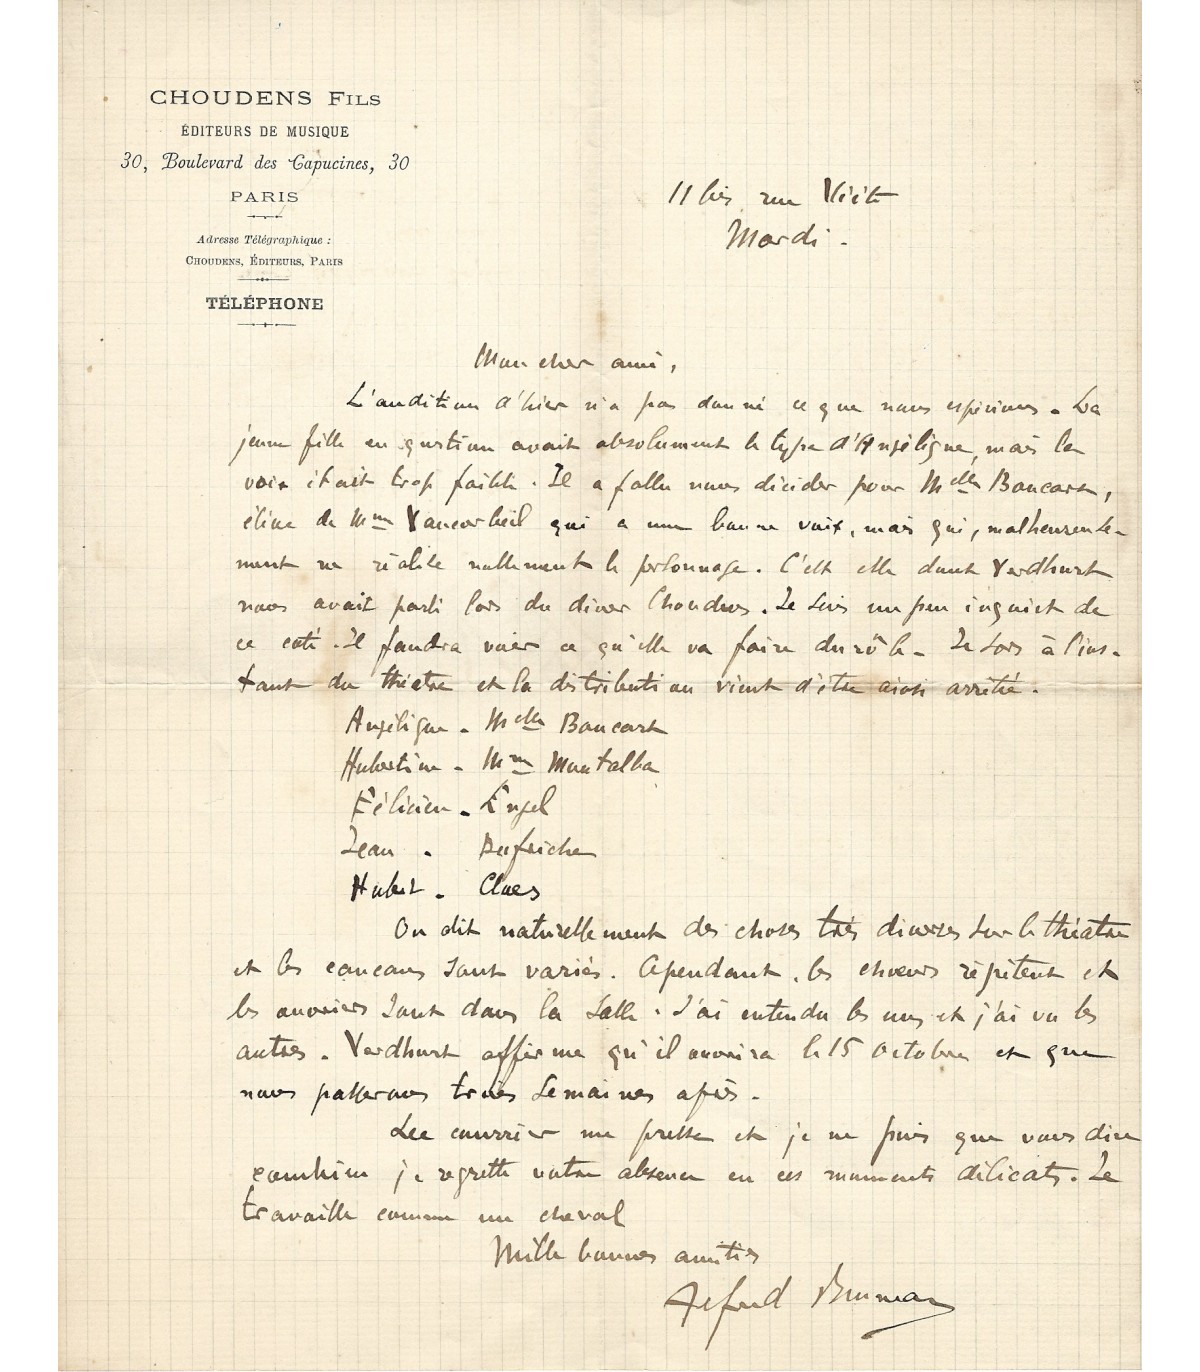 CHOUDENS FILS
ÉDITEURS DE MUSIQUE
30, Boulevard des Capucines, 30
PARIS
Adresse Télégraphique :
CHOUDENS, ÉDITEURS, PARIS
TÉLÉPHONE
11 bis rue Viète
Mardi.
Mon cher ami,
L'audition d'hier n'a pas donné ce que nous espérions. La
jeune fille en question avait absolument le type d'Angélique, mais la
voix était trop faible. Il a fallu nous décider pour Melle Bancart,
élève de Mme Vaucorbeil qui a une bonne voix, mais qui, malheureuse-
ment ne réalise nullement le personnage. C'est elle dont Verdhurt
nous avait parlé lors du dîner Choudens. Je suis un peu inquiet de
ce côté. Il faudra voir ce qu'elle va faire du rôle. Je sors à l'ins-
tant du théâtre et la distribution vient d'être ainsi arrêtée.
Angélique - Melle Bancart
Hubertine - Mme Montalba
Félicien - Engel
Jean - Dufriche
Hubert - Claes
On dit naturellement des choses très diverses sur le théâtre
et les cancans sont variés. Cependant, les choeurs répètent et
les ouvriers sont dans la salle. J'ai entendu les uns et j'ai vu les
autres. Verdhurt affirme qu'il ouvrira le 15 octobre et que
nous passerons trois semaines après.
Le courrier me presse et je ne puis que vous dire
combien je regrette votre absence en ces moments délicats. Je
travaille comme un cheval
Mille bonnes amitiés
Alfred Bruneau